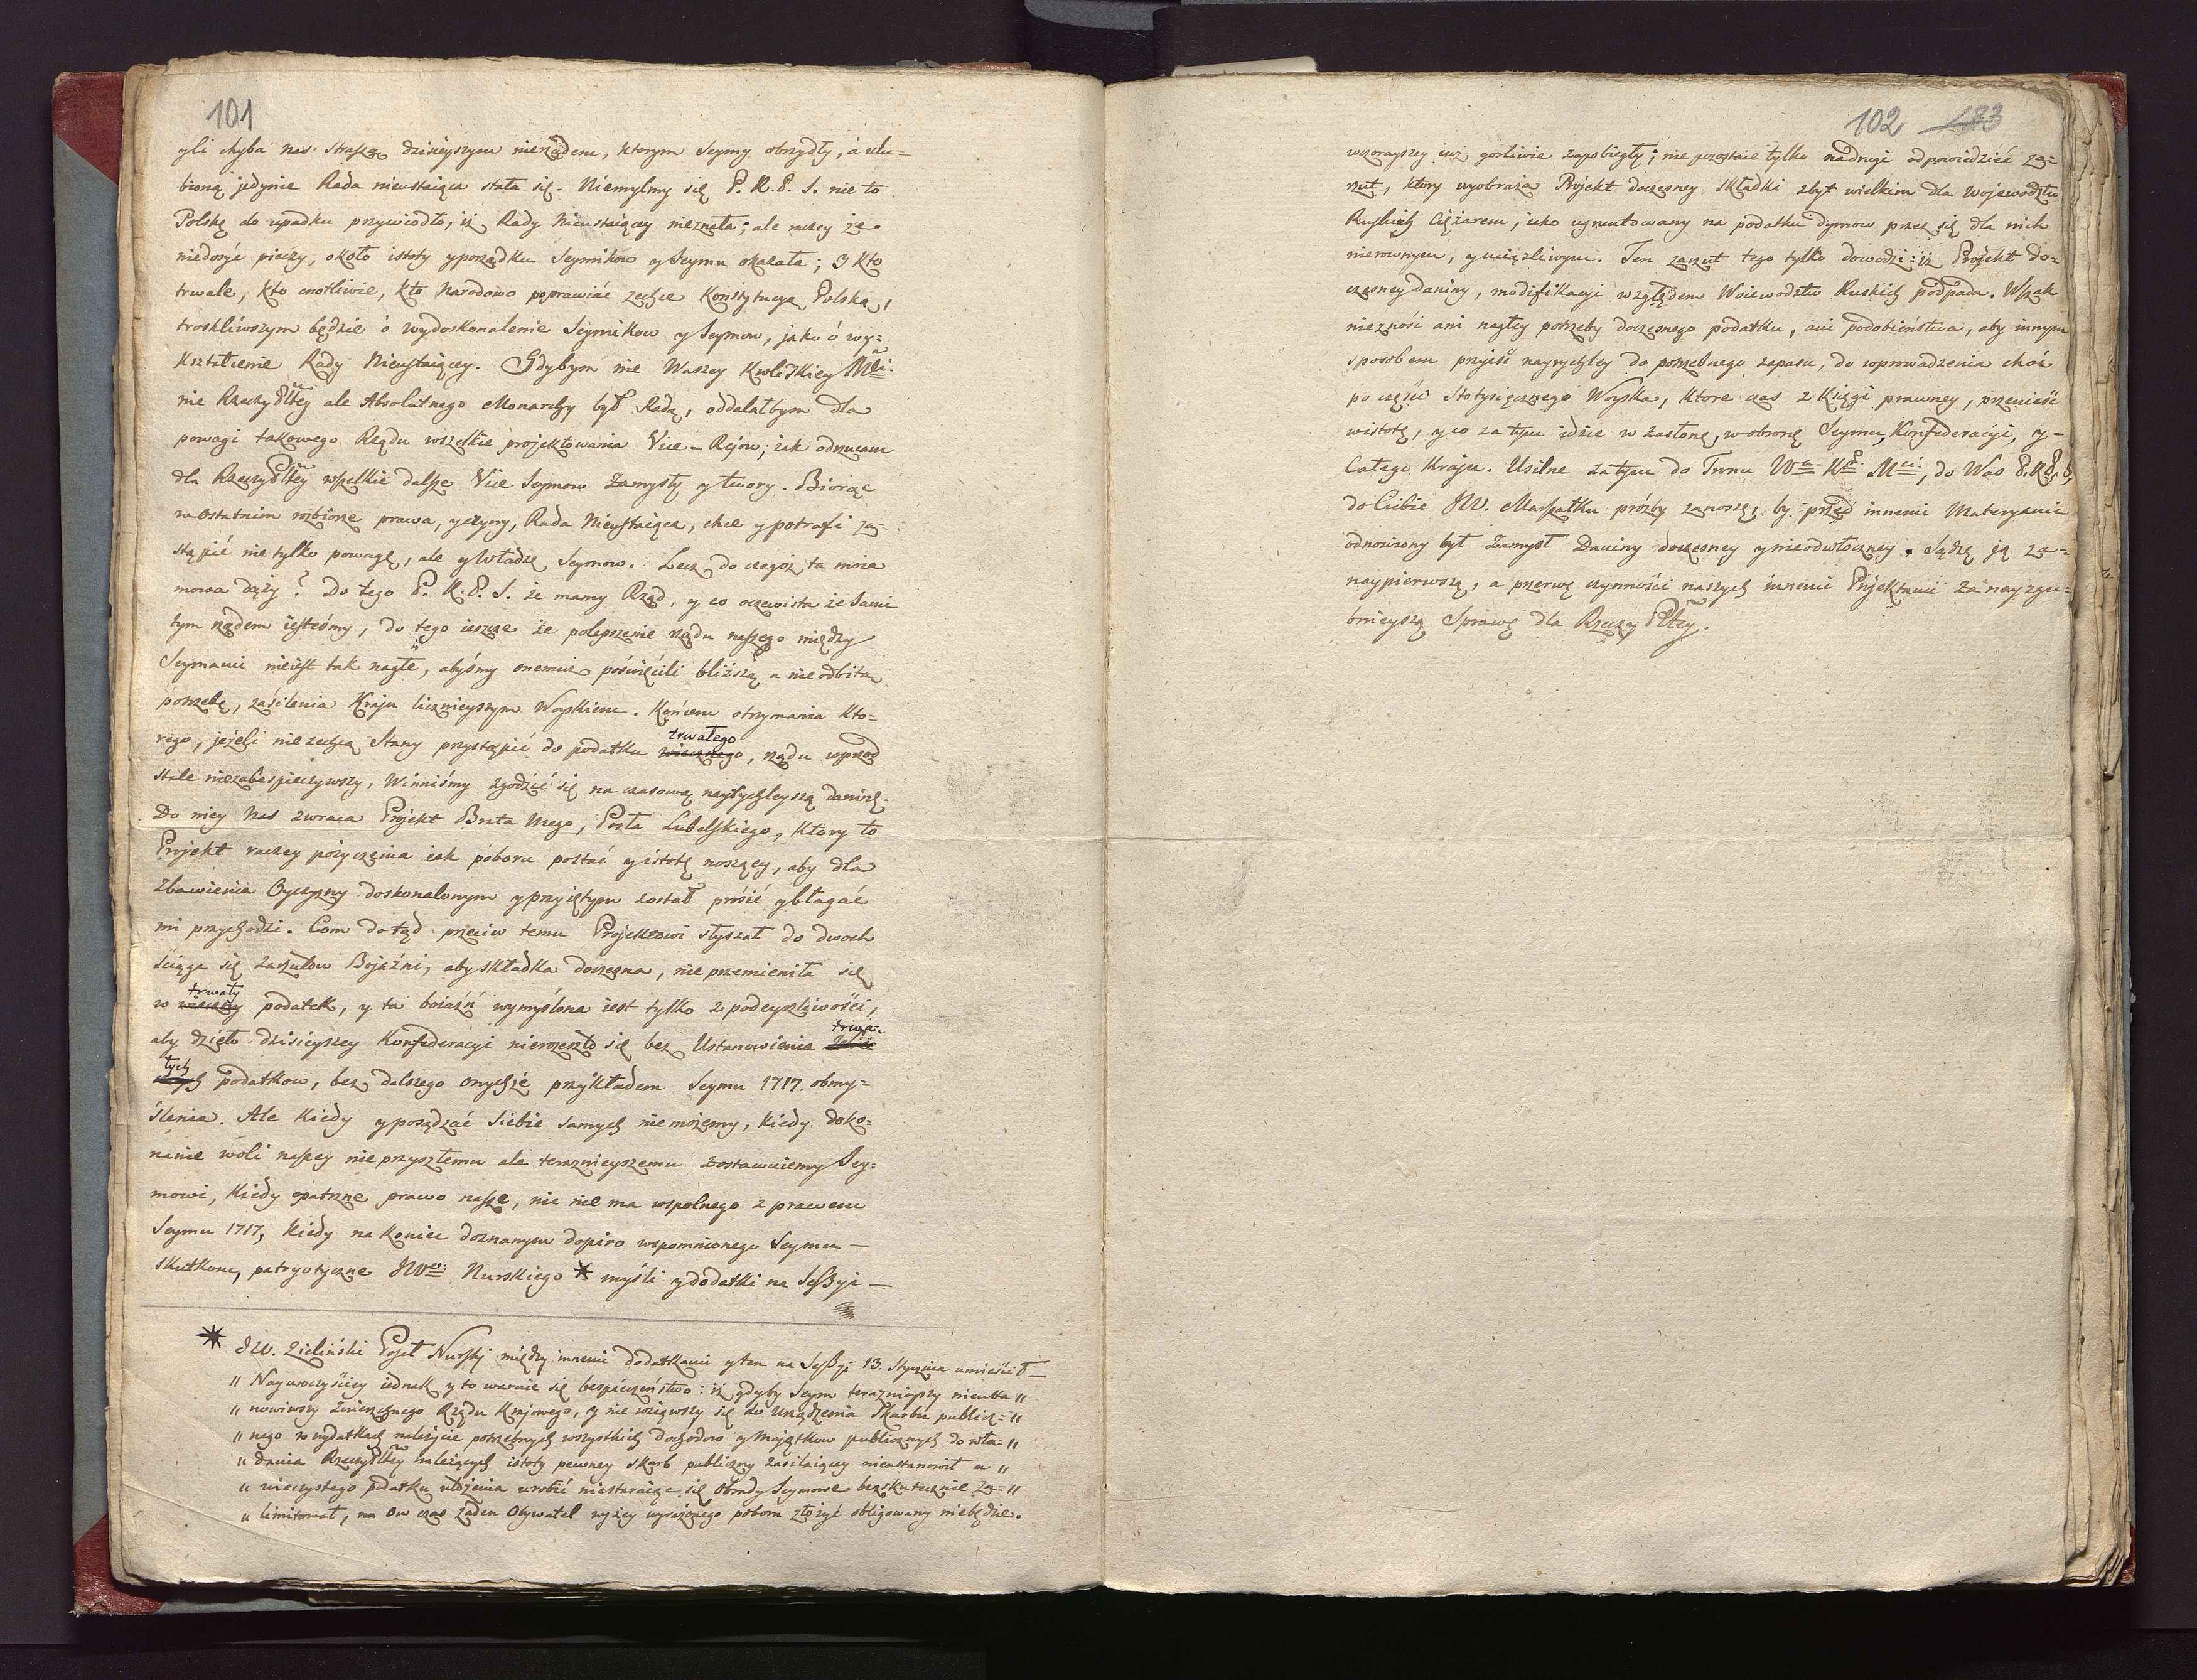 101
yli chyba nas straszą dzisieyszym nierządem, ktorym Seymy obrzydły, á ulu-
bioną jedynie Rada nieustaiąca stała się. Niemylmy się P. R. P. S. nie to
Polskę do upadku przywiodło, iż Rady Nieustaiącey nieznała; ale raczey że
niedosyć pieczy, około istoty y porządku Seymikow y Seymu okazała; 3 kto
trwale, kto cnotliwie, kto Narodowo poprawiać zechce Konstytucyą Polską,
troskliwszym będzie ó wydoskonalenie Seymikow y Seymow, jako ó wy=
kształcenie Rady Nieustaiącey. Gdybym nie Waszey Krolewskiey Mci.
nie Rzeczypltey ale Absolutnego Monarchy był Radą, oddalałbym dla
powagi takowego Rządu wszelkie projektowania Vice-Rejow; iak odrzucam
dla Rzeczypltey wszelkie dalsze Vice Seymow Zamysły y twory. Biorąc
w ostatnim rozbiorze prawa, y czyny, Rada Nieustaiąca, chce y potrafi za=
stąpić nie tylko powagę, ale y Władzę Seymow. Lecz do czegoż ta moia
mowa dąży? Do tego P. R. P. S. że mamy Rząd, y co oczewista że Sami
tym rządem iesteśmy, do tego ieszcze że polepszenie rządu naszego między
Seymami nieiest tak nagłe, abyśmy onemuż poświęcili bliższą a nieodbitą
potrzebę, zasilenia Kraju licznieyszym Woyskiem. Końcem otrzymania kto=
rego, jeżeli nie zechcą Stany przystąpić do podatku wiecznego trwałego, rządu wprzod
stale niezabespieczywszy, Winniśmy zgodzić się na czasową naytychleyszą daninę.
Do niey Nas zwraca Projekt Brata mego, Posła Lubelskiego, ktory to
Projekt raczey pożyczenia iak poboru postać y istotę noszący, aby dla
Zbawienia Oyczyzny doskonalonym y przyiętym został prosić y błagać
mi przychodzi. Com dotąd przeciw temu Projektowi słyszał do dwoch
ściąga się zarzutow Bojaźni, aby składka doczesna, nie przemieniła się
w wieczny trwały podatek, y ta boiaźń wymyślona iest tylko z podeyrzliwości,
aby dzieło dzisieyszey Konfederacyi nierozeszło się bez Ustanowienia trwa-
łych podatkow, bez dalszego onychże przykładem Seymu 1717. obmy=
ślenia. Ale kiedy y posądzać siebie samych nie możemy, kiedy doko=
nanie woli naszey nie przyszłemu ale teraznieyszemu zostawuiemy Sey=
mowi, kiedy opatrzne prawo nasze, nic nie ma wspolnego z prawem
Seymu 1717, kiedy na koniec doznanym dopiro wspomnionego Seymu –
skutkom, patryotyczne JWo: Nurskiego * myśli y dodatki na Seßyi –
* JW. Zieliński Poseł Nurski między innemi dodatkami y ten na Seßyi 13. Stycznia umieścił –
" Nayuroczyściey iednak y to warnie się bespieczeństwo: iż gdyby Seym teraznieyszy nieusta "
" nowiwszy Zwierzchnego Rządu Krajowego, y nie wziąwszy się do urządzenia Skarbu publicz= "
" nego w wydatkach należycie potrzebnych wszystkich dochodow y Majątkow publicznych do wła= "
" dania Rzeczypltey należących istoty pewney skarb publiczny zasilaiącey nieustanowił a "
" wieczystego podatku ułożenia urobić niestaraiąc się obrady Seymowe bezskutecznie za= "
" limitował, na ow czas żaden Obywatel wyżey wyrażonego poboru złożyć obligowany niebędzie.
102 183
wczorayszey iuż gorliwie zapobiegły; nie pozostaie tylko na drugi odpowiedzieć za=
rzut, ktory wyobraża Projekt doczesney składki zbyt wielkim dla Wojewodztw
Ruskich Ciężarem, iako ugruntowany na podatku dymow przez się dla nich
nierownym, y uciążliwym. Ten zarzut tego tylko dowodzi: iż Projekt do=
czesney daniny, modifikacyi względem Woiewodztw Ruskich podpada. Wszak
nieznosi ani nagłey potrzeby doczesnego podatku, ani podobieństwa, aby innym
sposobem przyiść nayrychley do potrzebnego zapasu, do wprowadzenia choć
po części Stotysięcznego Woyska, ktore czas z Xięgi prawney, przenieść
w istotę, y co zatym idzie w zasłonę, w obronę Seymu, Konfederacyi, y –
Całego Kraju. Usilne zatym do Tronu Wa KP Mci:, do Was P.R.P.S,
do Ciebie JW. Marszałku prózby zanoszę; by przed innemi Materyami
odnowiony był Zamysł Daniny doczesney y nieodwłoczney. Sądzę ją za=
naypierwszą, a przerwę czynności naszych innemi Projektami za nayzgu=
bnieyszą Sprawę dla Rzeczy Pltey.